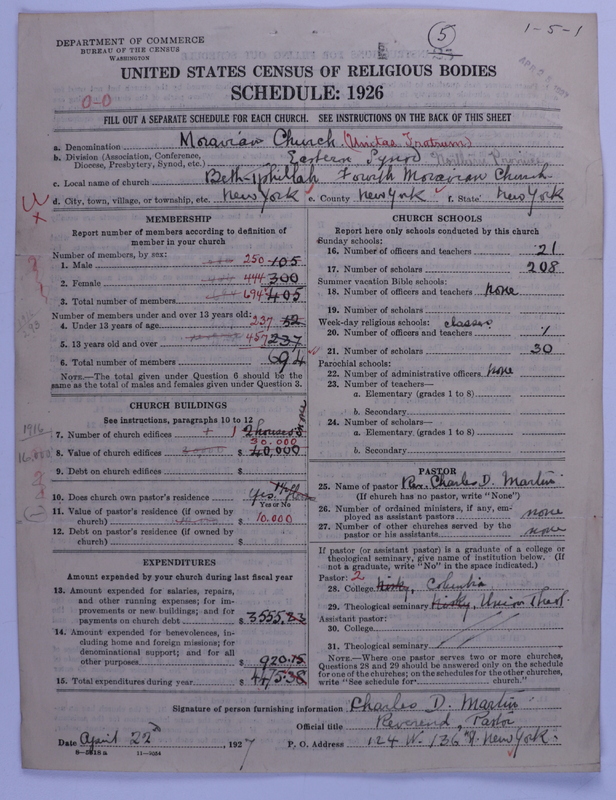 (5)
1-5-1
DEPARTMENT OF COMMERCE
BUREAU OF THE CENSUS
WASHINGTON
UNITED STATES CENSUS OF RELIGIOUS BODIES
SCHEDULE: 1926
0-0
FILL OUT A SEPARATE SCHEDULE FOR EACH CHURCH. SEE INSTRUCTIONS ON THE BACK OF THIS SHEET
a. Denomination Moravian Church (Unitas Fratrum)
b. Division (Association, Conference, Diocese, Presbytery, Synod, etc.) Eastern Synod Northern Province
c. Local name of church Beth-tphillah Fourth Moravian Church
d. City, town, village, or township, etc. New York e. County New York f. State New York
MEMBERSHIP
Report number of members according to definition of member in your church
Number of members, by sex:
1. Male 250 105
2. Female 444 300
3. Total number of members 694 405
Number of members under and over 13 years old:
4. Under 13 years of age 237
5. 13 years old and over 457 237
6. Total number of members 694
NOTE.—The total given under Question 6 should be the same as the total of males and females given under Question 3.
CHURCH BUILDINGS
See instructions, paragraphs 10 to 12
1916
7. Number of church edifices 1 2 houses
30.000
16.000
8. Value of church edifices $ 40,000
9. Debt on church edifices $ none
10. Does church own pastor's residence Yes
Yes or No
11. Value of pastor's residence (if owned by church) $ 10.000
12. Debt on pastor's residence (if owned by church) $
EXPENDITURES
Amount expended by your church during last fiscal year
13. Amount expended for salaries, repairs, and other running expenses; for improvements or new buildings; and for payments on church debt $ 3555.23
14. Amount expended for benevolences, including home and foreign missions; for denominational support; and for all other purposes $ 920.15
15. Total expenditures during year $ 4475.38
CHURCH SCHOOLS
Report here only schools conducted by this church
Sunday schools:
16. Number of officers and teachers 21
17. Number of scholars 208
Summer vacation Bible schools:
18. Number of officers and teachers none
19. Number of scholars
Week-day religious schools: classes
20. Number of officers and teachers 1
21. Number of scholars 30
Parochial schools:
22. Number of administrative officers none
23. Number of teachers—
a. Elementary (grades 1 to 8)
b. Secondary
24. Number of scholars—
a. Elementary (grades 1 to 8)
b. Secondary
PASTOR
25. Name of pastor Rev. Charles D. Martin
(If church has no pastor, write "None")
26. Number of ordained ministers, if any, employed as assistant pastors none
27. Number of other churches served by the pastor or his assistants none
If pastor (or assistant pastor) is a graduate of a college or theological seminary, give name of institution below. (If not a graduate, write "No" in the space indicated.)
Pastor: 2
28. College Nisky, Columbia
29. Theological seminary Nisky, Union Theol.
Assistant pastor:
30. College
31. Theological seminary
NOTE.—Where one pastor serves two or more churches, Questions 28 and 29 should be answered only on the schedule for one of the churches; on the schedules for the other churches, write "See schedule for church."
Signature of person furnishing information Charles D. Martin
Official title Reverend, Pastor
Date April 22nd, 1927 P. O. Address 124 W. 136 St. New York.
8—5218 a 11—9054